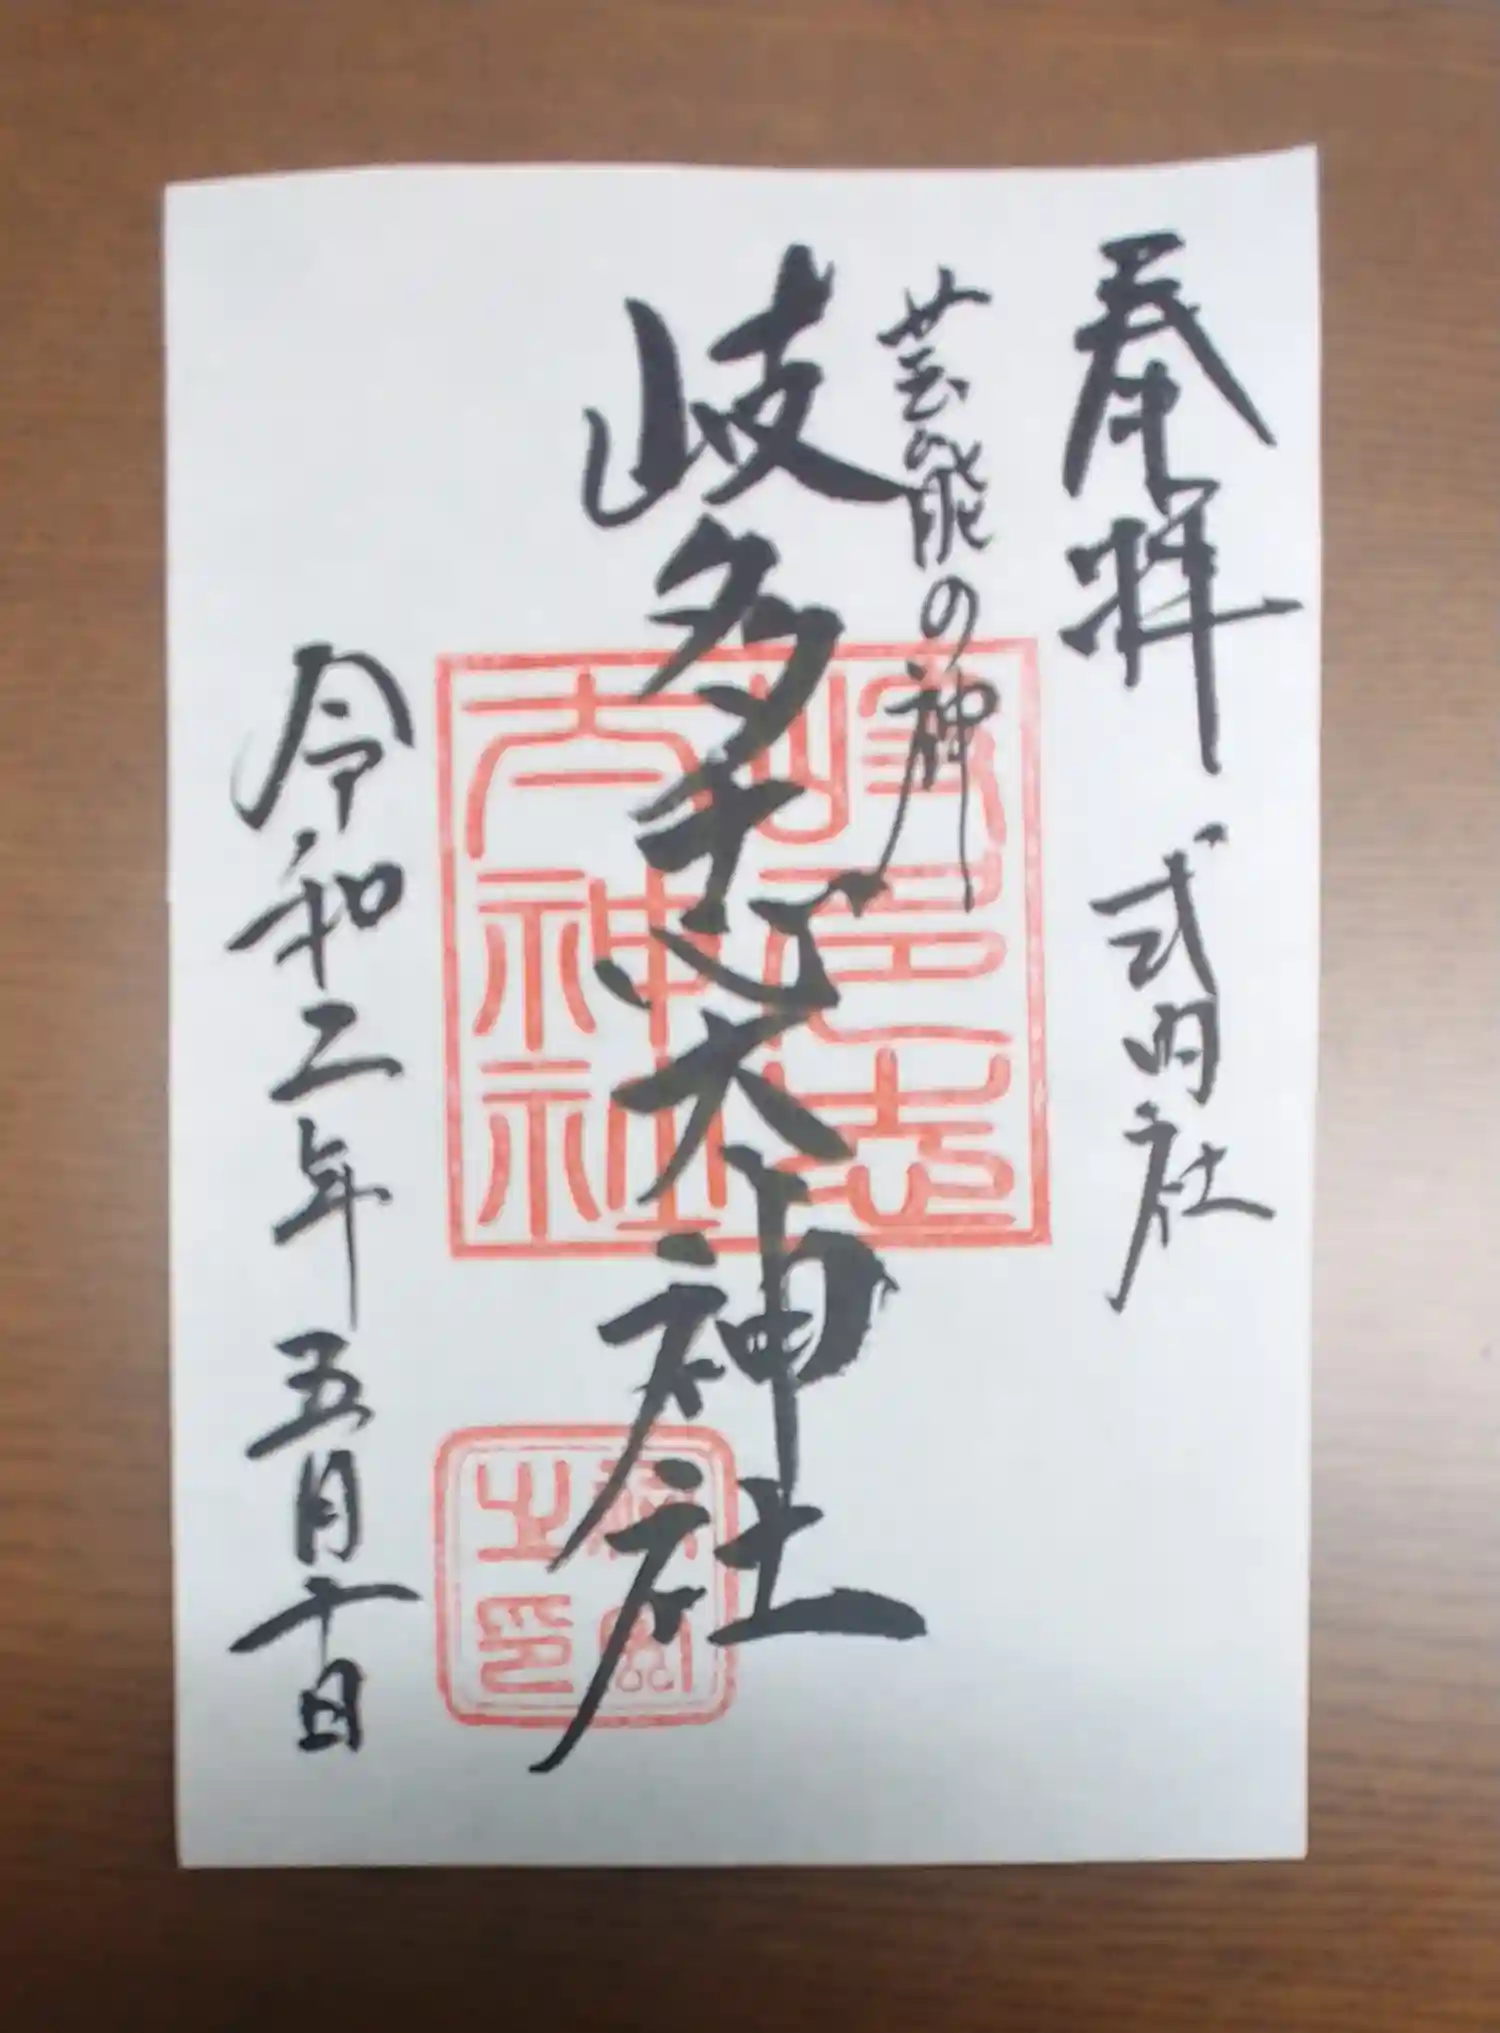 奉拝 式内社
芸能の神
岐多志太神社
令和二年五月十日
岐多志
太神社